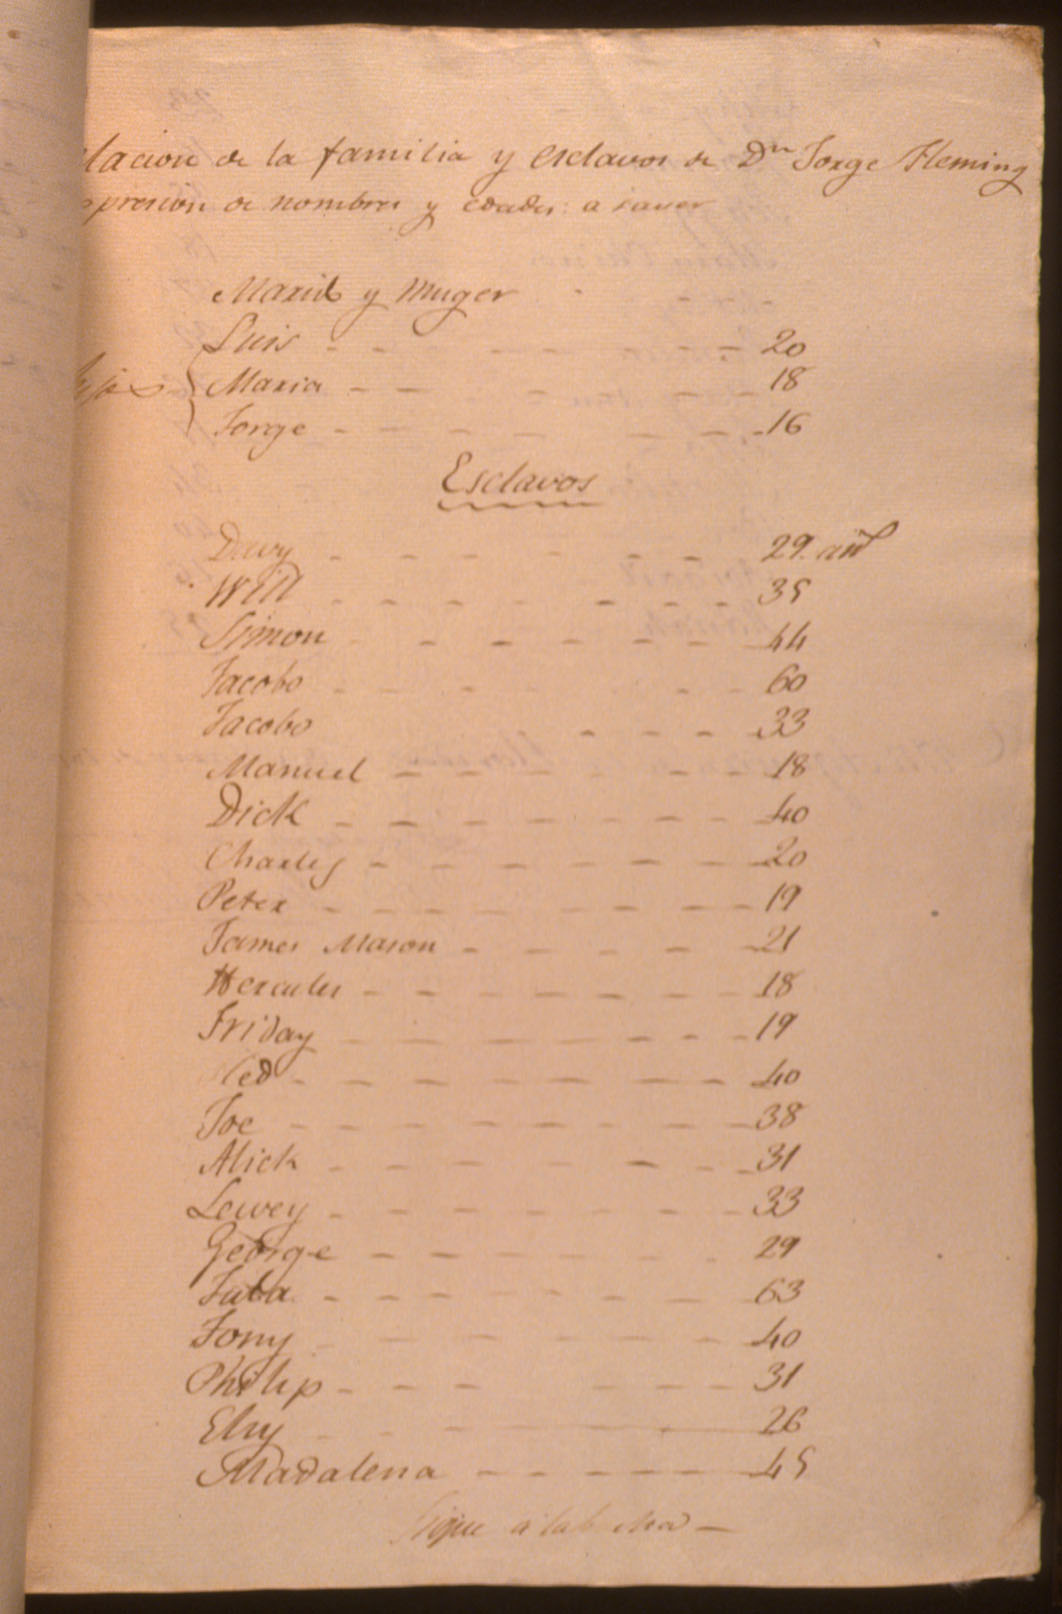 lacion de la familia y esclavos de Dn Jorge Fleming
presion de nombres y edades: a saver
Marido y Muger
Luis 20
hijos Maria 18
Jorge 16
Esclavos
Davy 29 añs
Will 35
Simon 44
Jacobo 60
Jacobo 33
Manuel 18
Dick 40
Charles 20
Peter 19
James Mason 21
Hercules 18
Friday 19
Ned 40
Joe 38
Alick 31
Lewey 33
George 29
Juba 63
Tony 40
Philip 31
Elsy 26
Madalena 45
Sigue a la buelta